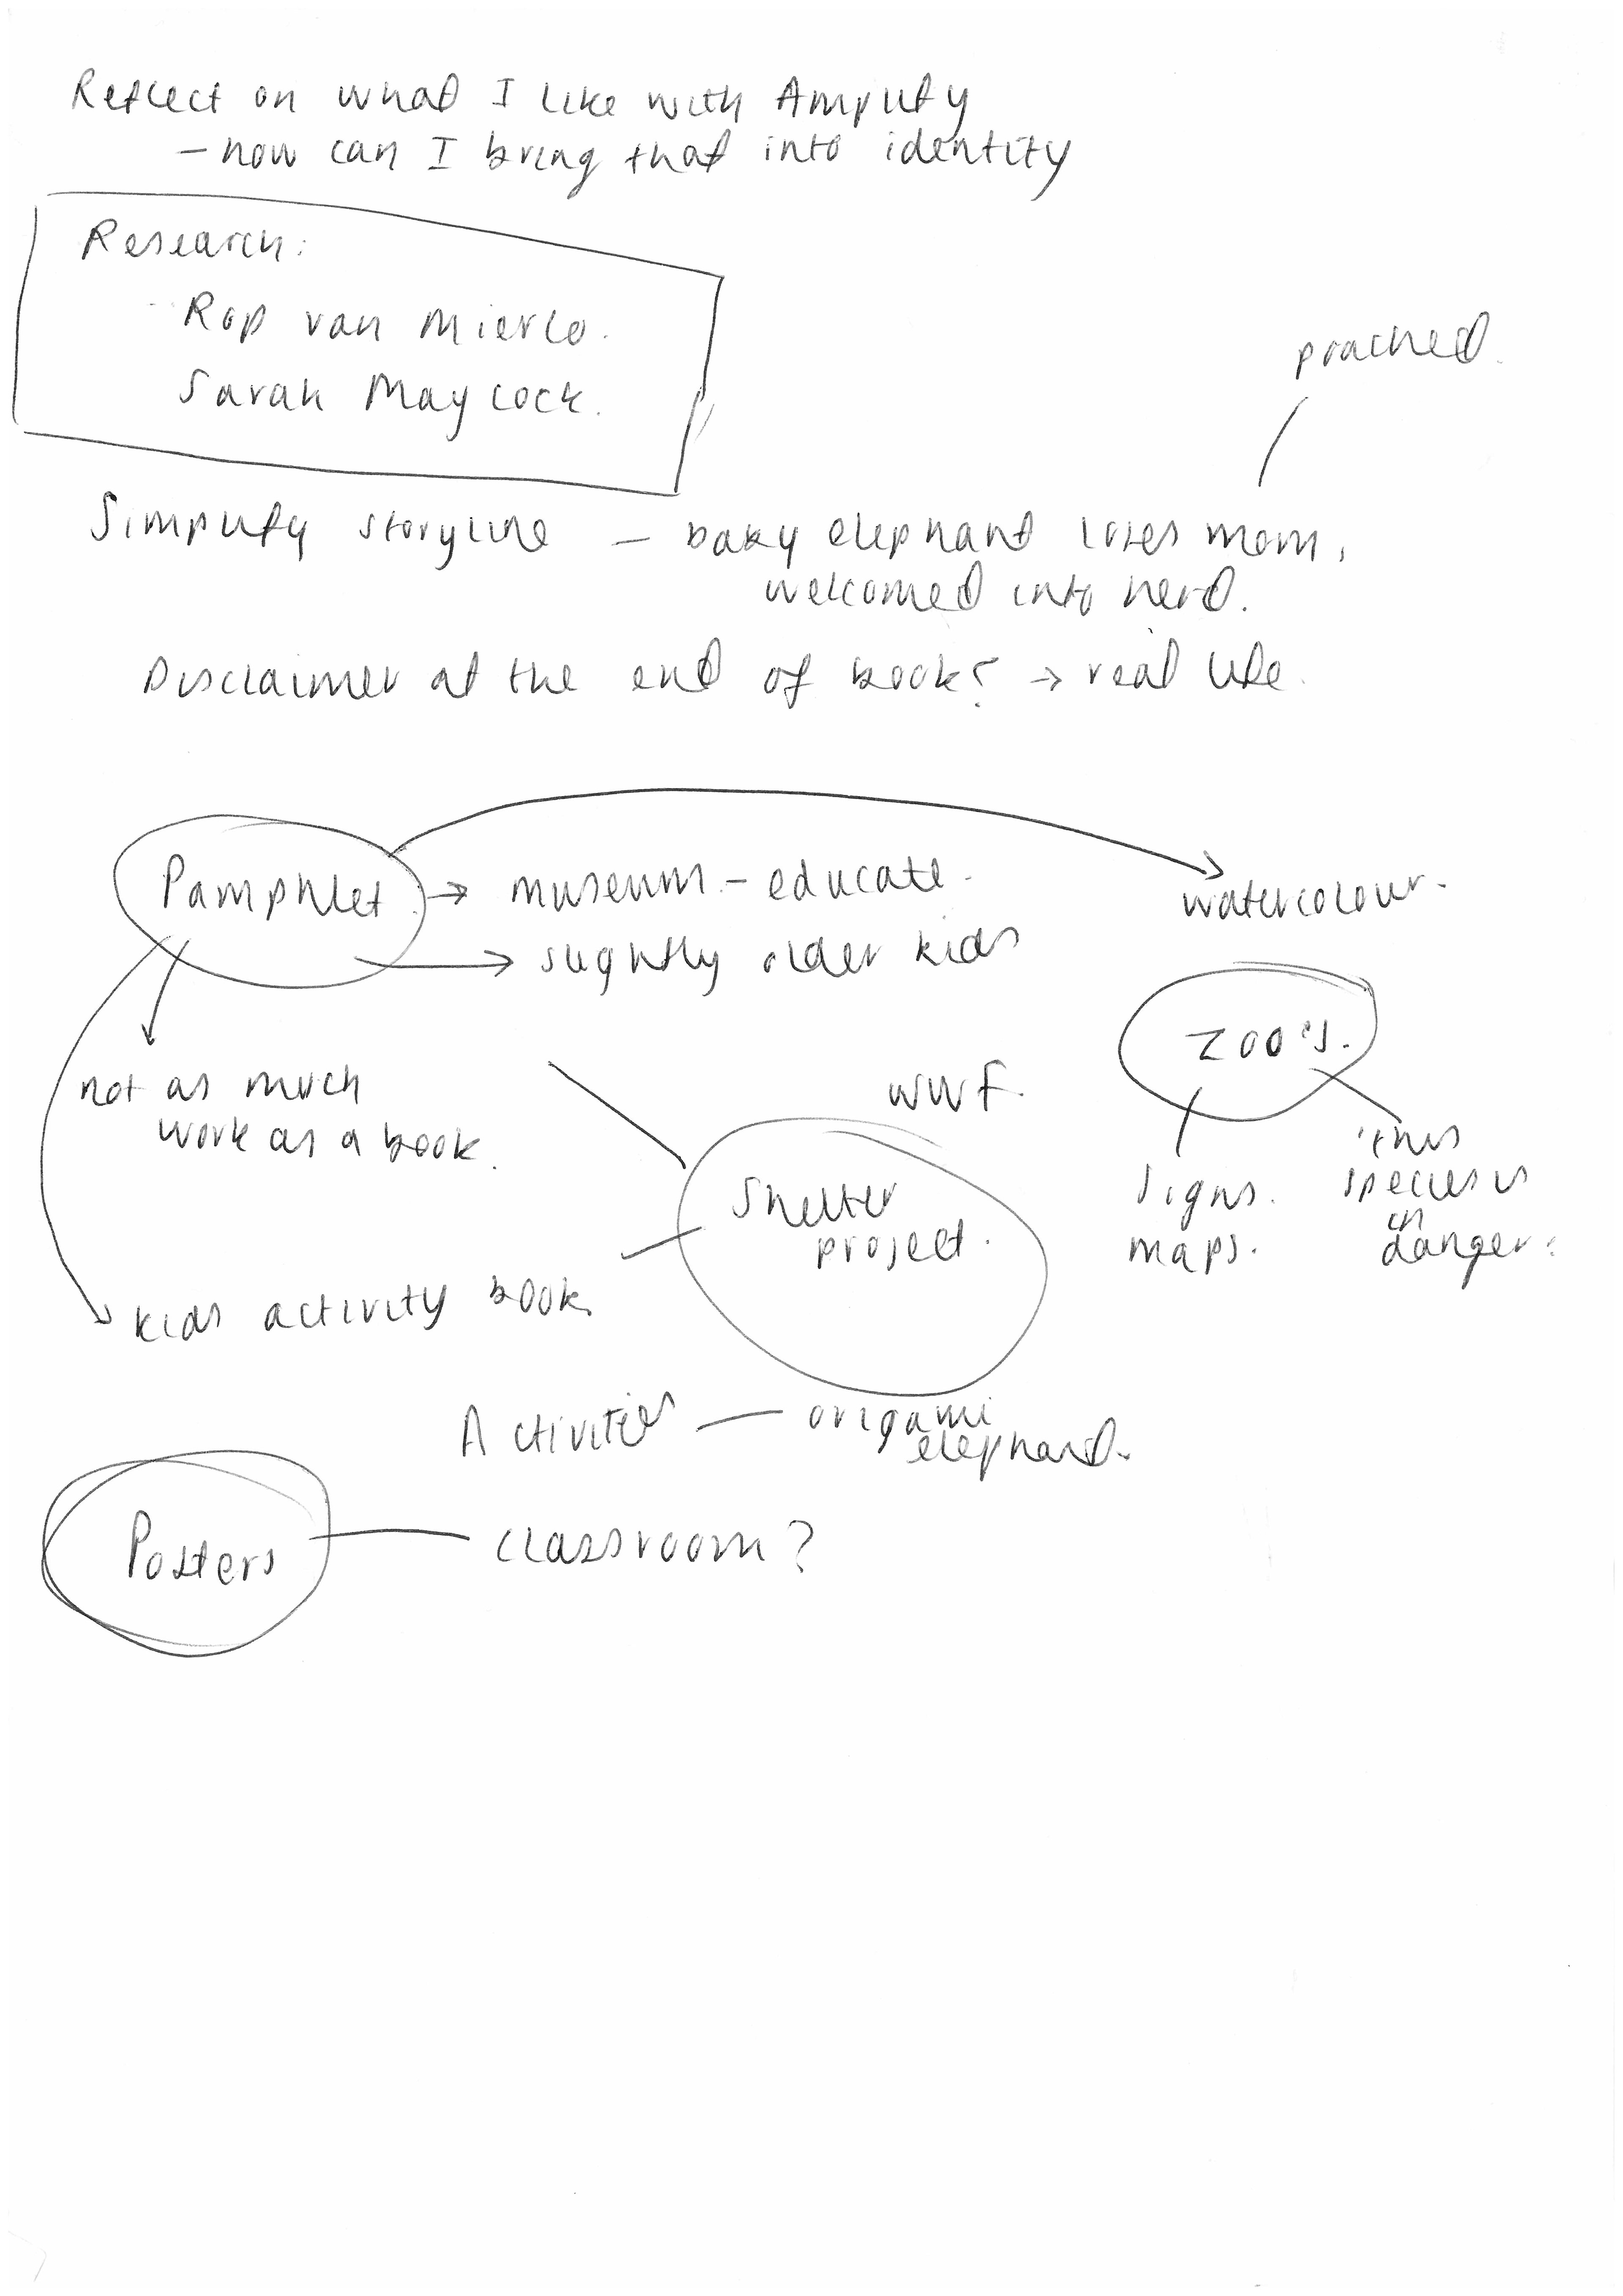 Reflect on what I like with Amplify
- how can I bring that into identity
Research:
Rop van Mierlo.
Sarah Maycock.
poached.
Simplify storyline - baby elephant loses mom,
welcomed into herd.
Disclaimer at the end of book? → real life.
Pamphlet → museum - educate.
watercolour.
slightly older kids
zoo's.
not as much
work as a book.
WWF.
signs.
maps.
'this
species is
in
danger.
Shelter
project.
kids activity book.
Activities - origami
elephant.
Posters - classroom?